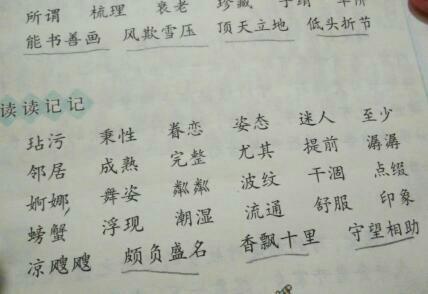 所谓 梳理 衰老 珍藏
能书善画 风欺雪压 顶天立地 低头折节
读读记记
玷污 秉性 眷恋 姿态 迷人 至少
邻居 成熟 完整 尤其 提前 潺潺
婀娜 舞姿 粼粼 波纹 干涸 点缀
螃蟹 浮现 潮湿 流通 舒服 印象
凉飕飕 颇负盛名 香飘十里 守望相助